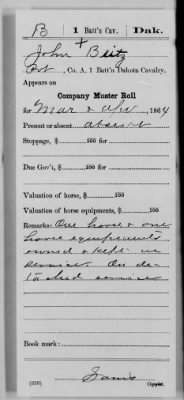 B | 1 Batt'n Cav. | Dak.
John + Beitz
Pvt, Co. A, 1 Batt'n Dakota Cavalry.
Appears on
Company Muster Roll
for Mar & Apr, 1864
Present or absent Absent
Stoppage, $ 100 for
Due Gov't, $ 100 for
Valuation of horse, $ 100
Valuation of horse equipments, $ 100
Remarks: One horse & one
horse equipments
owned & kept in
service. On de-
tached service
Book mark:
(358)
Copyist.